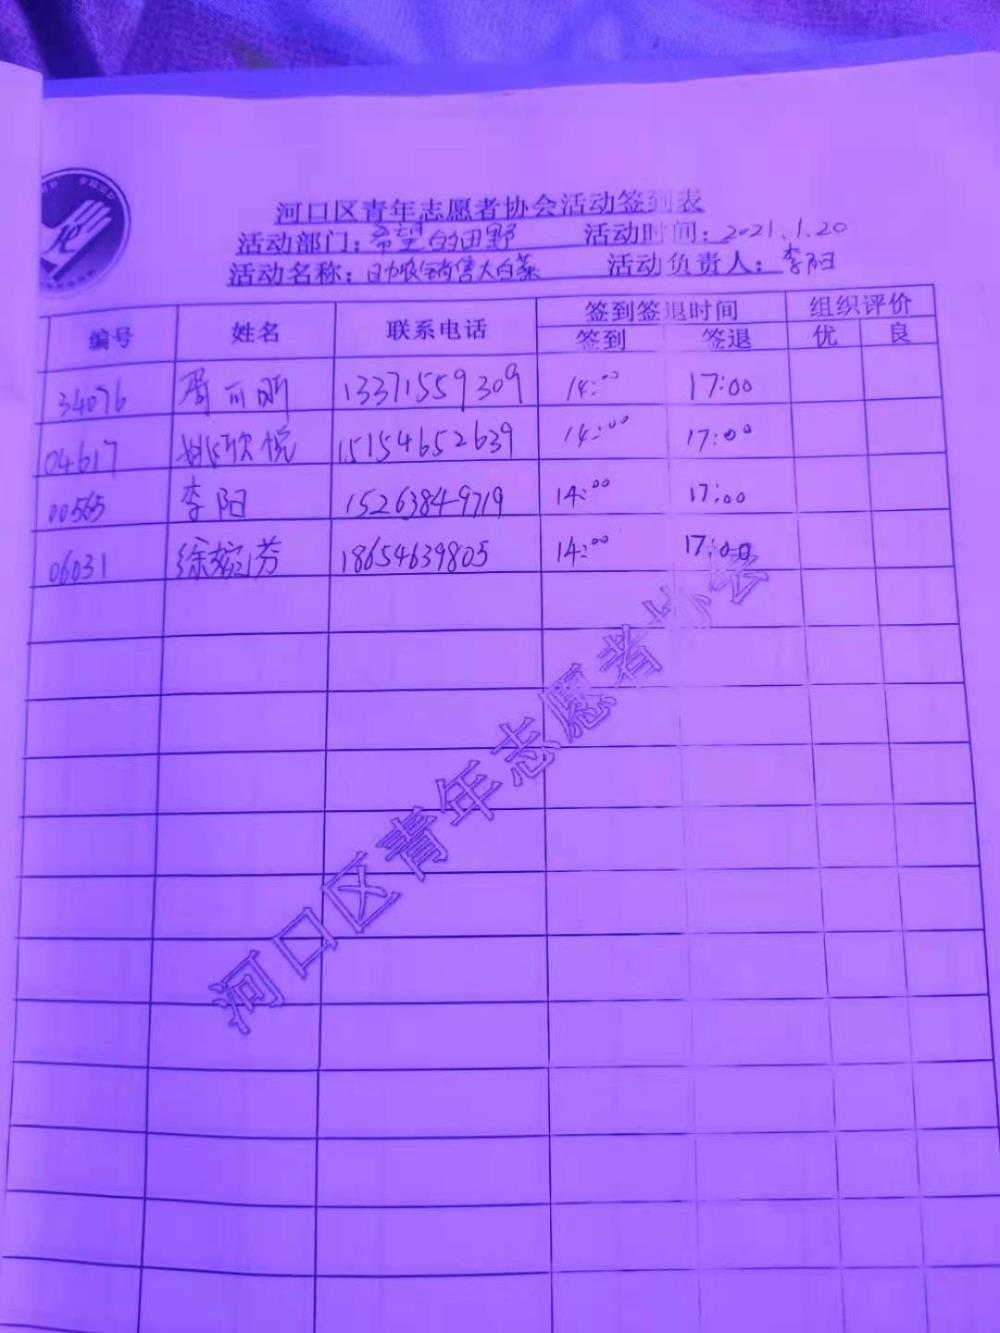 河口区青年志愿者协会活动签到表
活动部门：希望的田野 活动时间：2021.1.20
活动名称：助农销售大白菜 活动负责人：李阳
编号 姓名 联系电话 签到签退时间 组织评价
签到 签退 优 良
34076 周可昕 13371559309 14:00 17:00
04617 姚欣悦 15154652639 14:00 17:00
00565 李阳 15263849719 14:00 17:00
06031 徐婉芬 18654639805 14:00 17:00
河口区青年志愿者协会